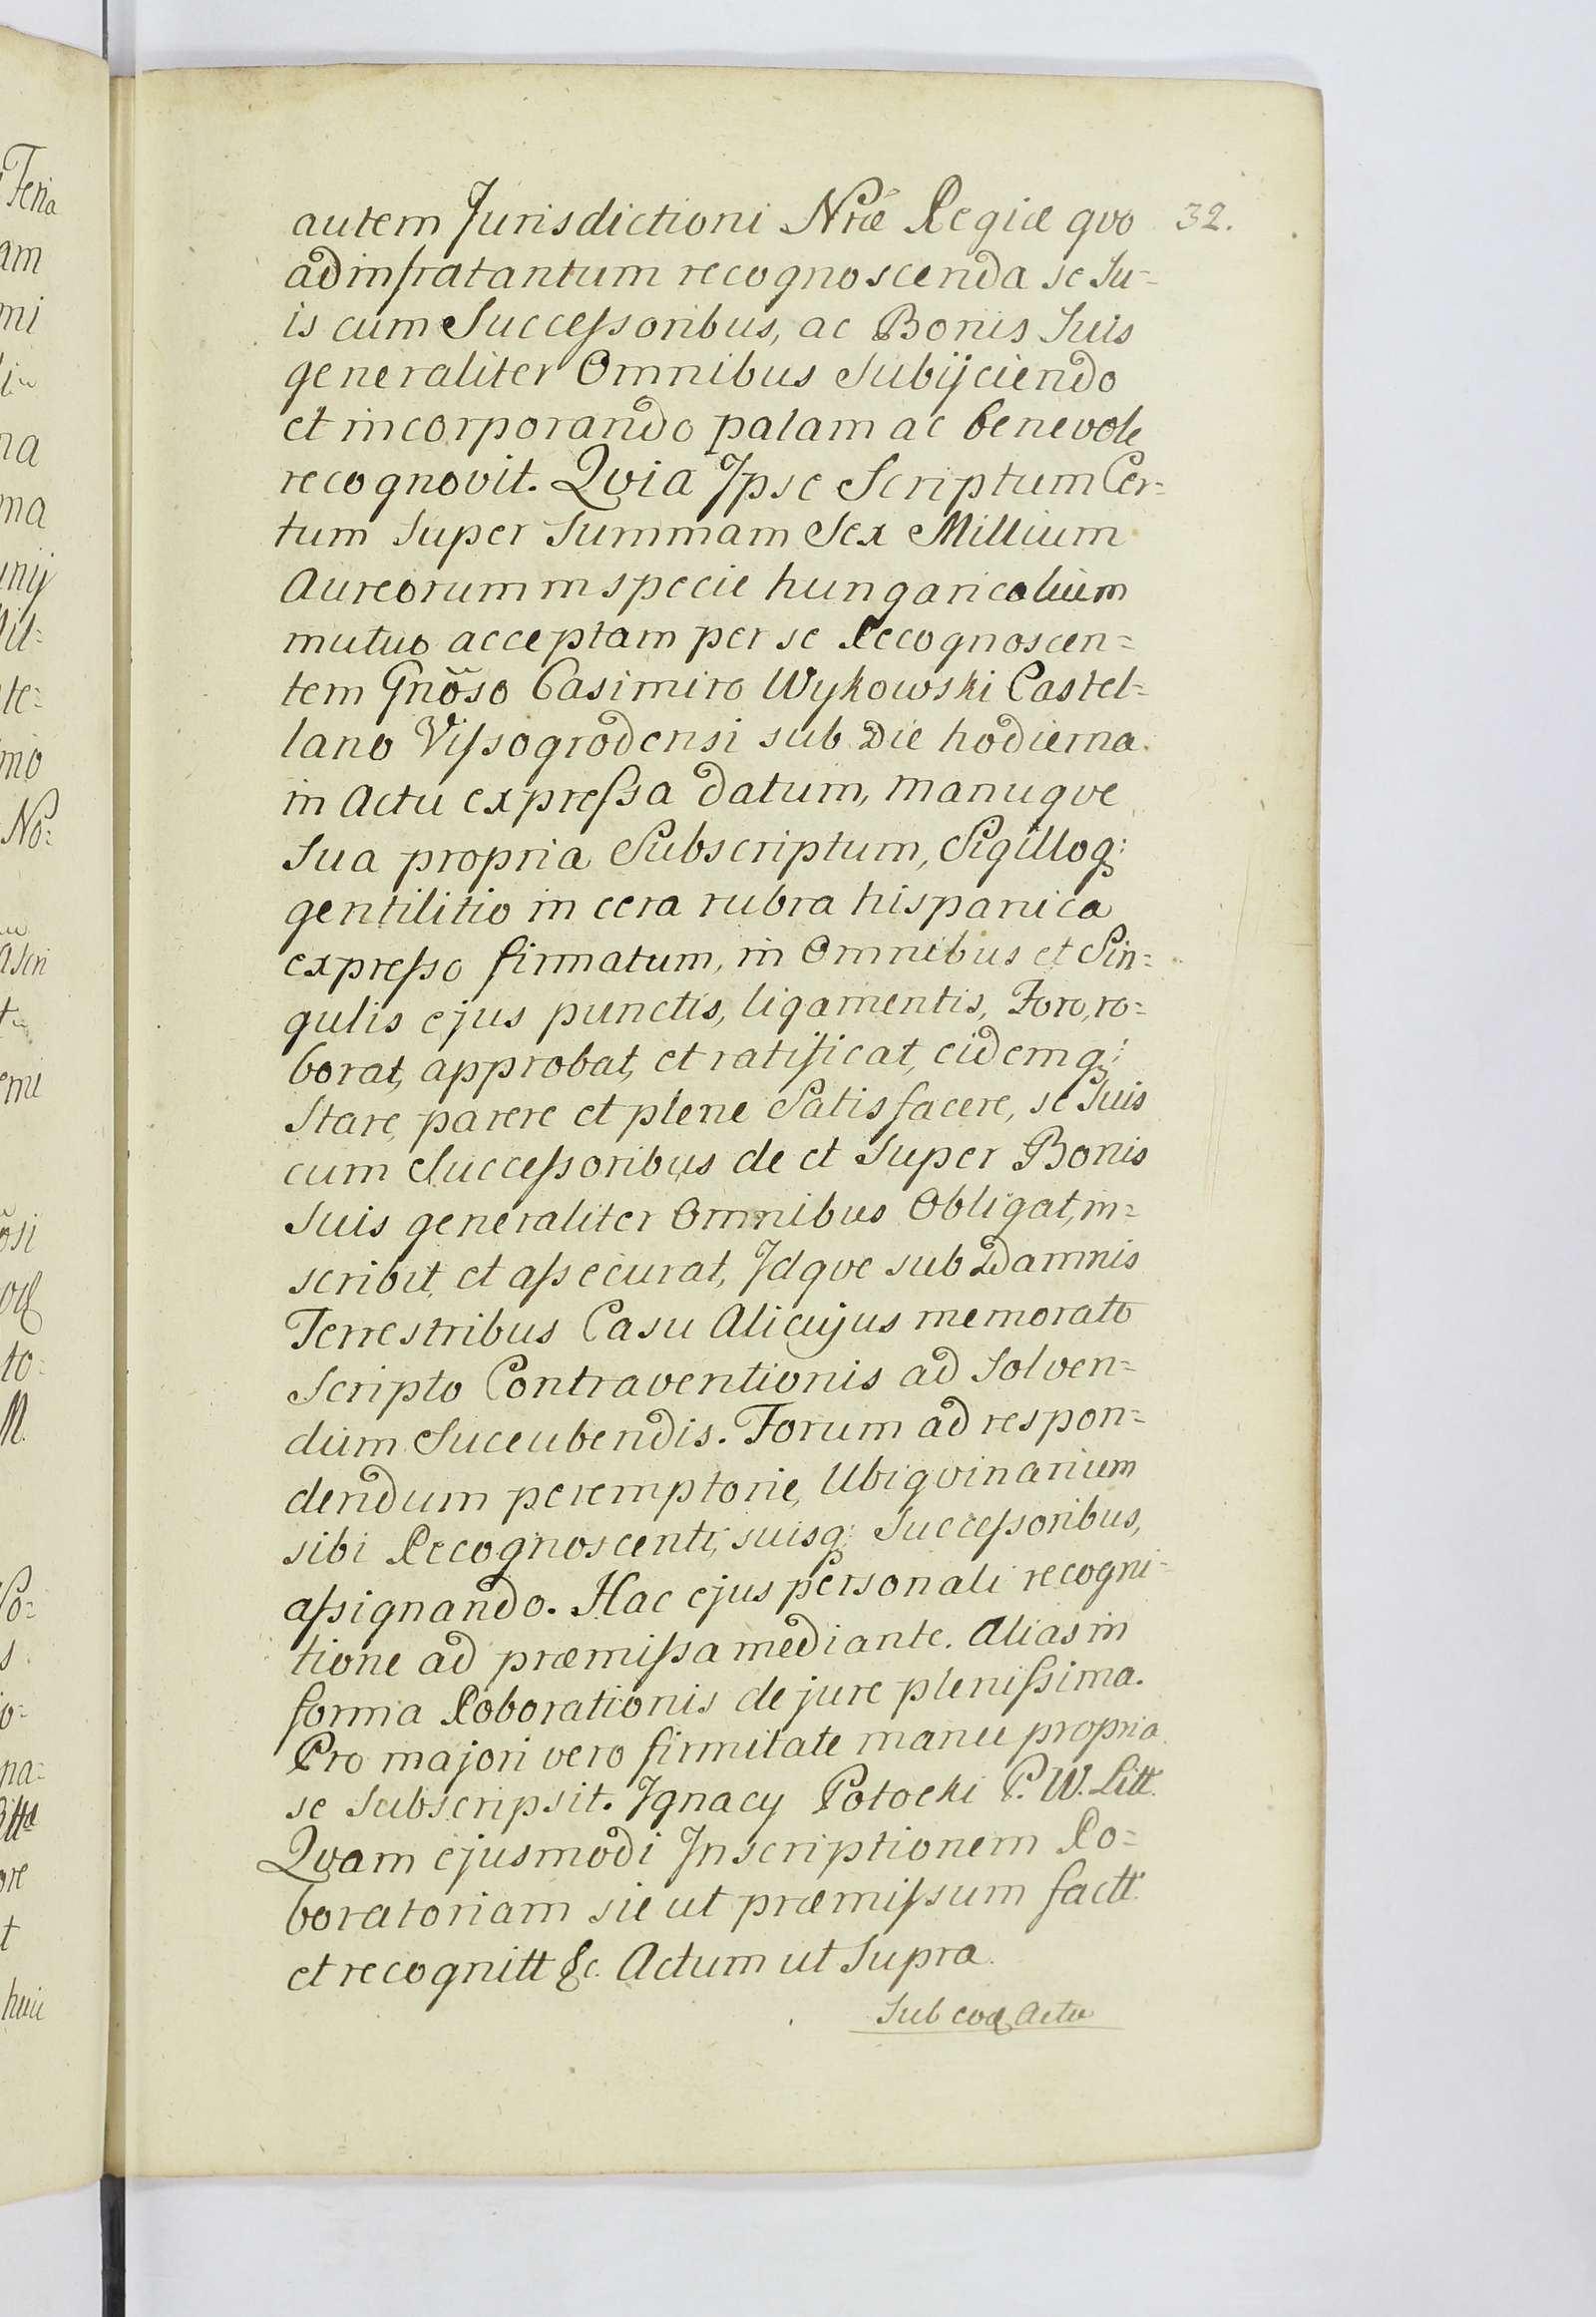 autem Jurisdictioni Nrae Regiae qvo 32.
ad infratantum recognoscenda se su-
is cum Successoribus, ac Bonis Suis
generaliter Omnibus Subijciendo
et incorporando palam ac benevole
recognovit. Qvia Ipse Scriptum Cer=
tum super summam Sex Millium
Aureorum in specie hungaricalium
mutuo acceptam per se Recognoscen=
tem Gnõso Casimiro Wykowski Castel=
lano Vissogrodensi sub Die hodierna
in Actu expressa datum, manuqve
sua propria Subscriptum, Sigilloq;
gentilitio in cera rubra hispanica
expresso firmatum, in Omnibus et Sin=
gulis ejus punctis, ligamentis, Foro, ro=
borat, approbat, et ratificat, eidemq;
Stare, parere et plene Satisfacere, se Suis
cum Successoribus de et super Bonis
Suis generaliter Omnibus Obligat, in=
scribit, et assecurat, Idqve sub Damnis
Terrestribus Casu Alicujus memorato
Scripto Contraventionis ad Solven=
dum Succubendis. Forum ad respon=
dendum peremptorie, Ubiqvinarium
sibi Recognoscenti, suisq; Successoribus,
assignando. Hac ejus personali recogni-
tione ad praemissa mediante. Alias in
forma Roborationis de jure plenissima.
Pro majori vero firmitate manu propria
se Subscripsit. Ignacy Potocki P. W. Litt.
Qvam ejusmodi Inscriptionem Ro=
boratoriam sic ut praemissum factt.
et recognitt &c. Actum ut Supra.
Sub eoq Actu